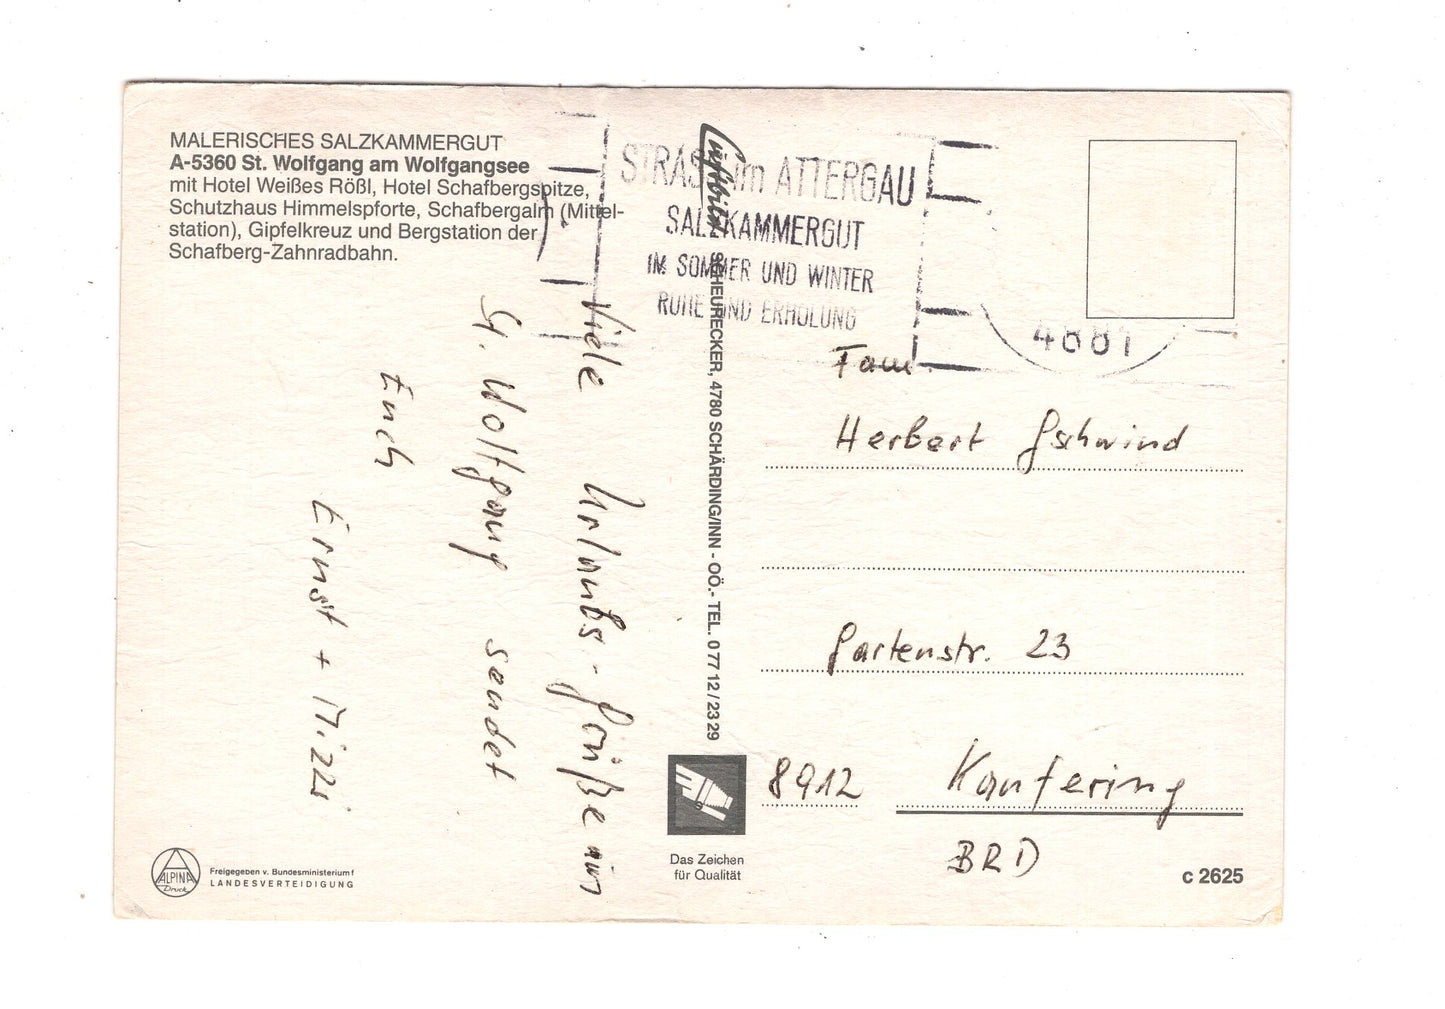 MALERISCHES SALZKAMMERGUT
A-5360 St. Wolfgang am Wolfgangsee
mit Hotel Weißes Rößl, Hotel Schafbergspitze,
Schutzhaus Himmelspforte, Schafbergalm (Mittel-
station), Gipfelkreuz und Bergstation der
Schafberg-Zahnradbahn.
Viele Urlaubs-Grüße aus
St. Wolfgang sendet
Euch
Ernst + Mizzi
ALPINA
Druck
Freigegeben v. Bundesministerium f
LANDESVERTEIDIGUNG
Luftbild SCHEURECKER, 4780 SCHÄRDING/INN - OÖ.- TEL. 0 77 12 / 23 29
Das Zeichen
für Qualität
STRASS im ATTERGAU
SALZKAMMERGUT
IM SOMMER UND WINTER
RUHE UND ERHOLUNG
4881
Fam.
Herbert Gschwind
Gartenstr. 23
8912 Kaufering
BRD
c 2625